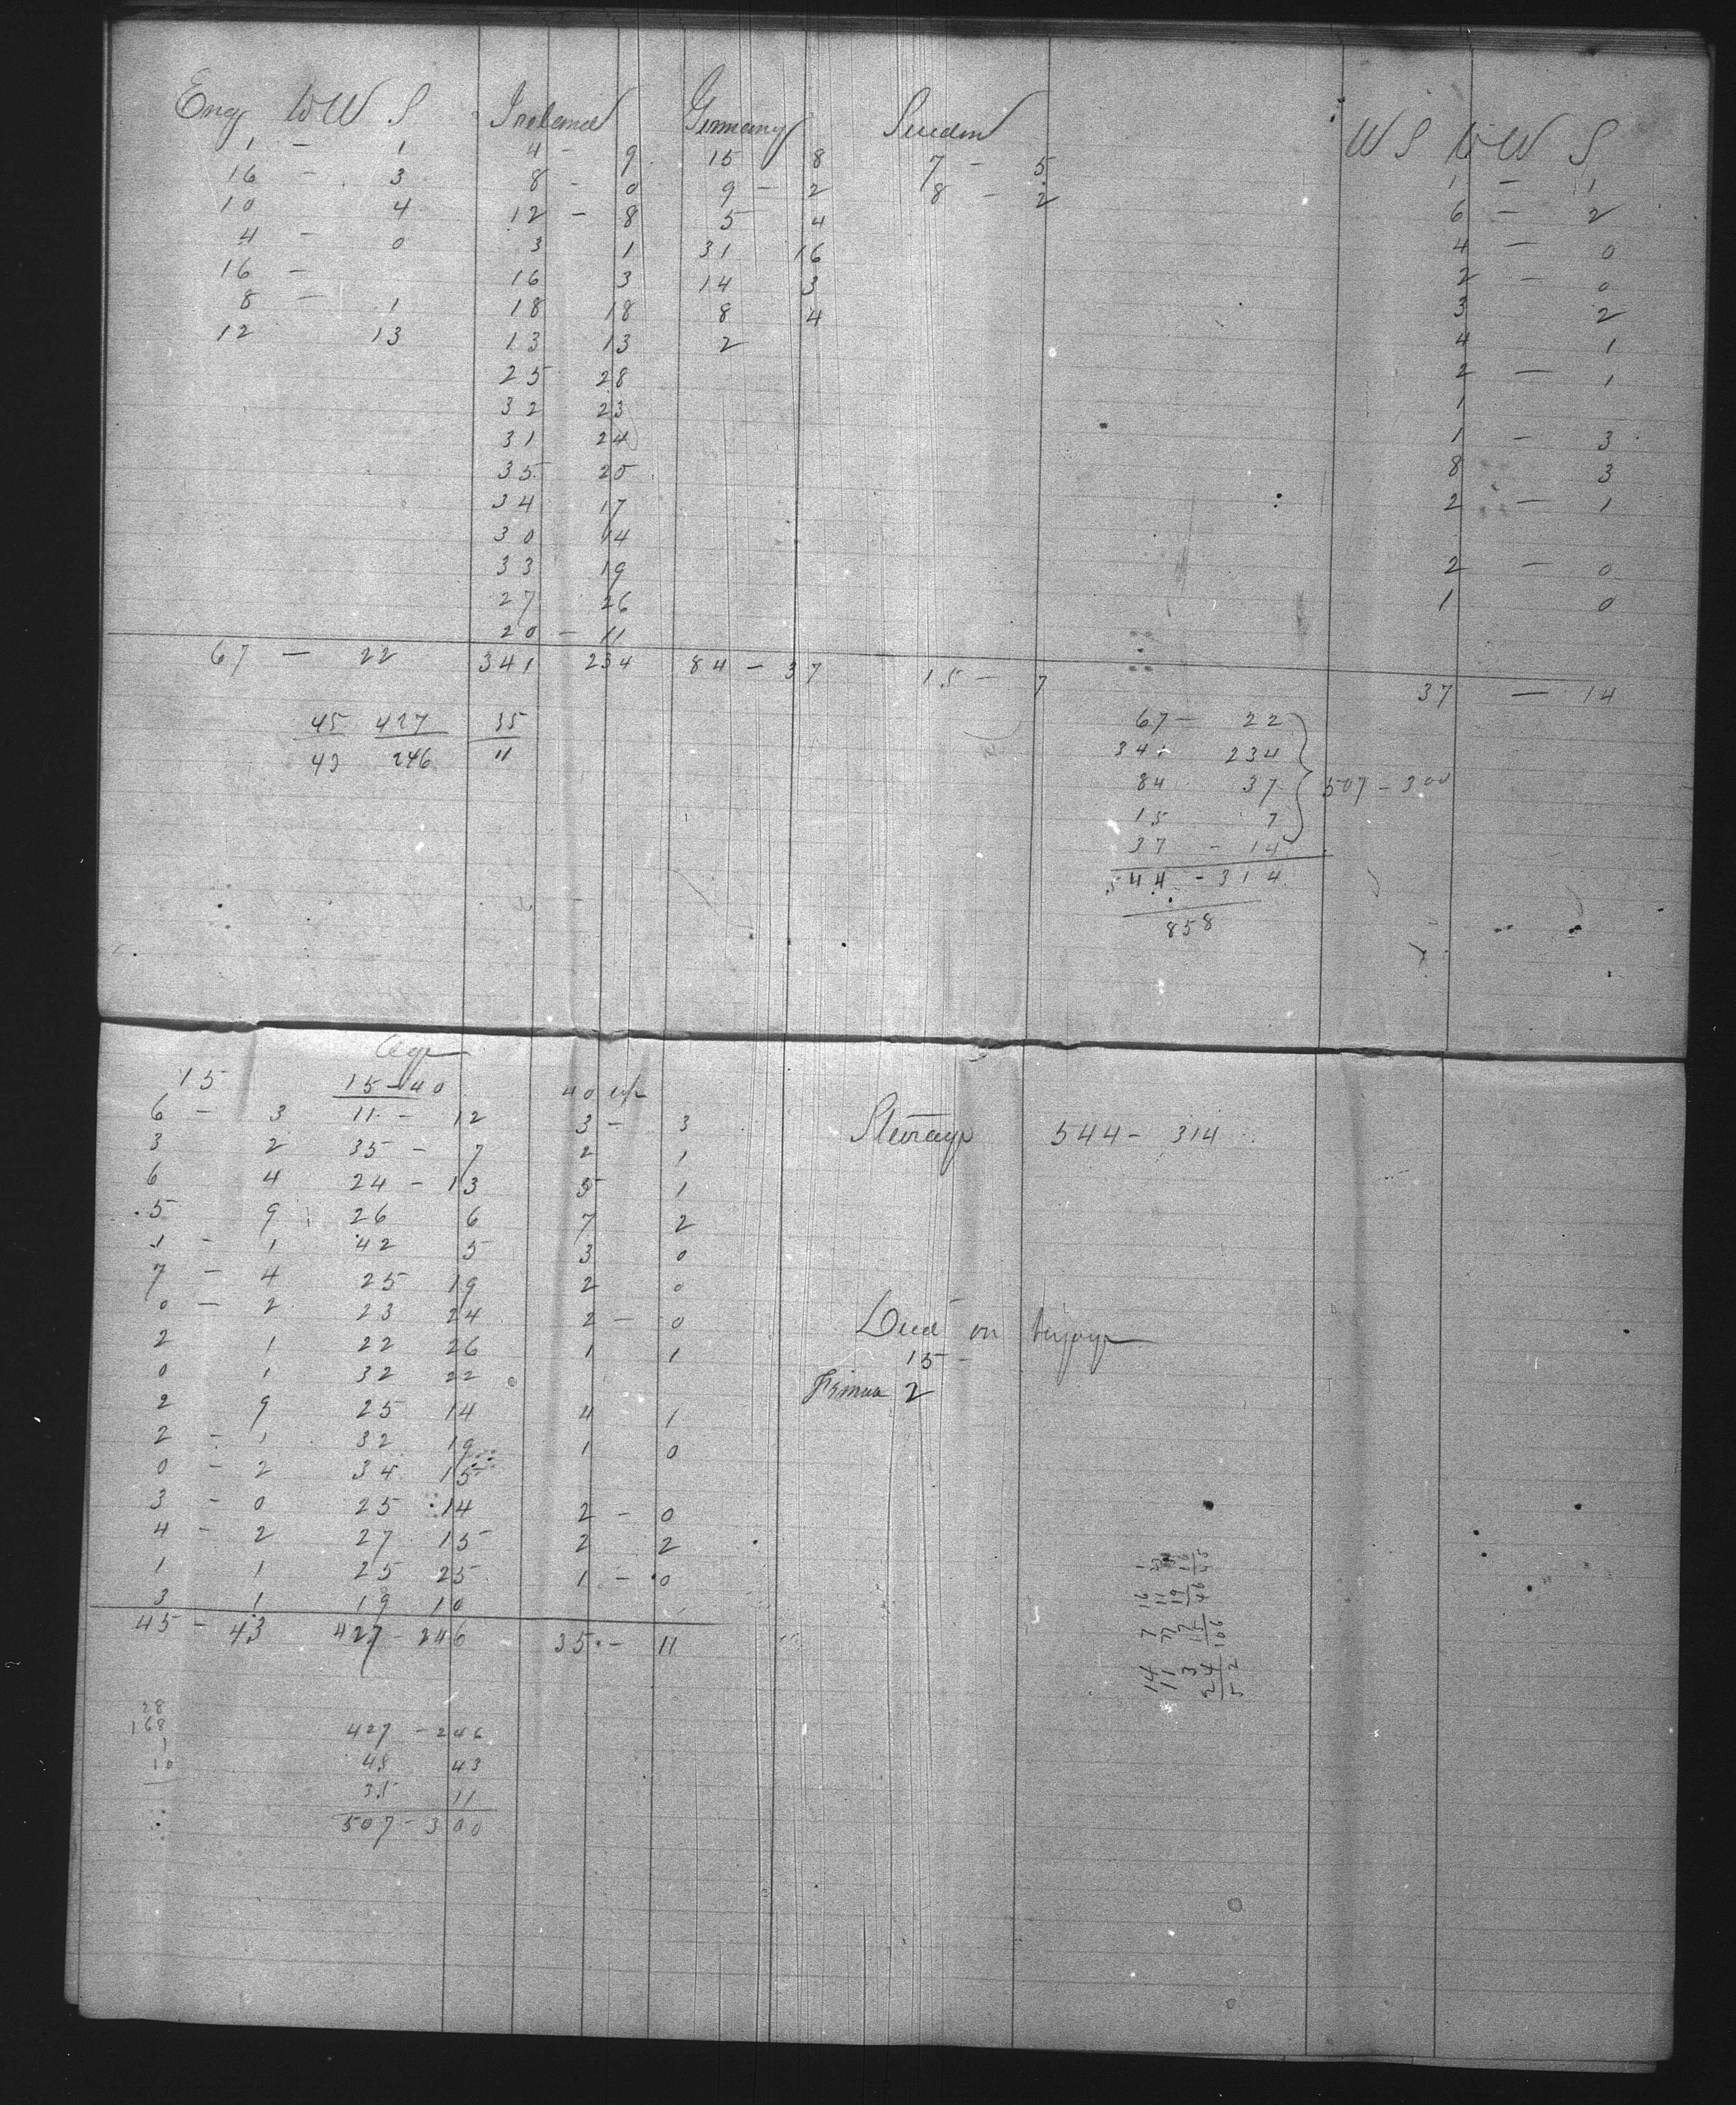 Eng W W S Ireland Germany Sweden W S W W S
1 - 1 4 - 9 15 8 7 - 5 1 - 1
16 - 3 8 - 0 9 - 2 8 - 2 6 - 2
10 4 12 - 8 5 4 4 - 0
4 - 0 3 1 31 16 2 - 0
16 - 16 3 14 3 3 2
8 - 1 18 18 8 4 4 1
12 13 13 13 2 2 - 1
25 28 1
32 23 1 - 3
31 24 8 3
35 20 2 - 1
34 17
30 14 2 - 0
33 19 1 0
27 26
20 - 11
67 - 22 341 234 84 - 37 15 - 7 37 - 14
45 427 35
43 246 11
67 - 22
341 234
84 37 507 - 300
15 7
37 - 14
544 - 314
858
Age
15 15-40 40 up
6 - 3 11 - 12 3 - 3
3 2 35 - 7 2 1
6 4 24 - 13 5 1
5 9 26 6 7 2
1 - 1 42 5 3 0
7 - 4 25 19 2 0
0 - 2 23 24 2 - 0
2 1 22 26 1 1
0 1 32 22
2 9 25 14 4 1
2 - 1 32 19 1 0
0 - 2 34 15
3 - 0 25 14 2 - 0
4 - 2 27 15 2 2
1 1 25 25 1 - 0
3 1 19 10
45 - 43 427 - 246 35 - 11
Steerage 544 - 314
Died on Voyage
15 -
2
28
168
1
10
427 - 246
45 43
35 11
507 - 300
14 11 3 24 52
7 77 7 15 106
16 11 19 46